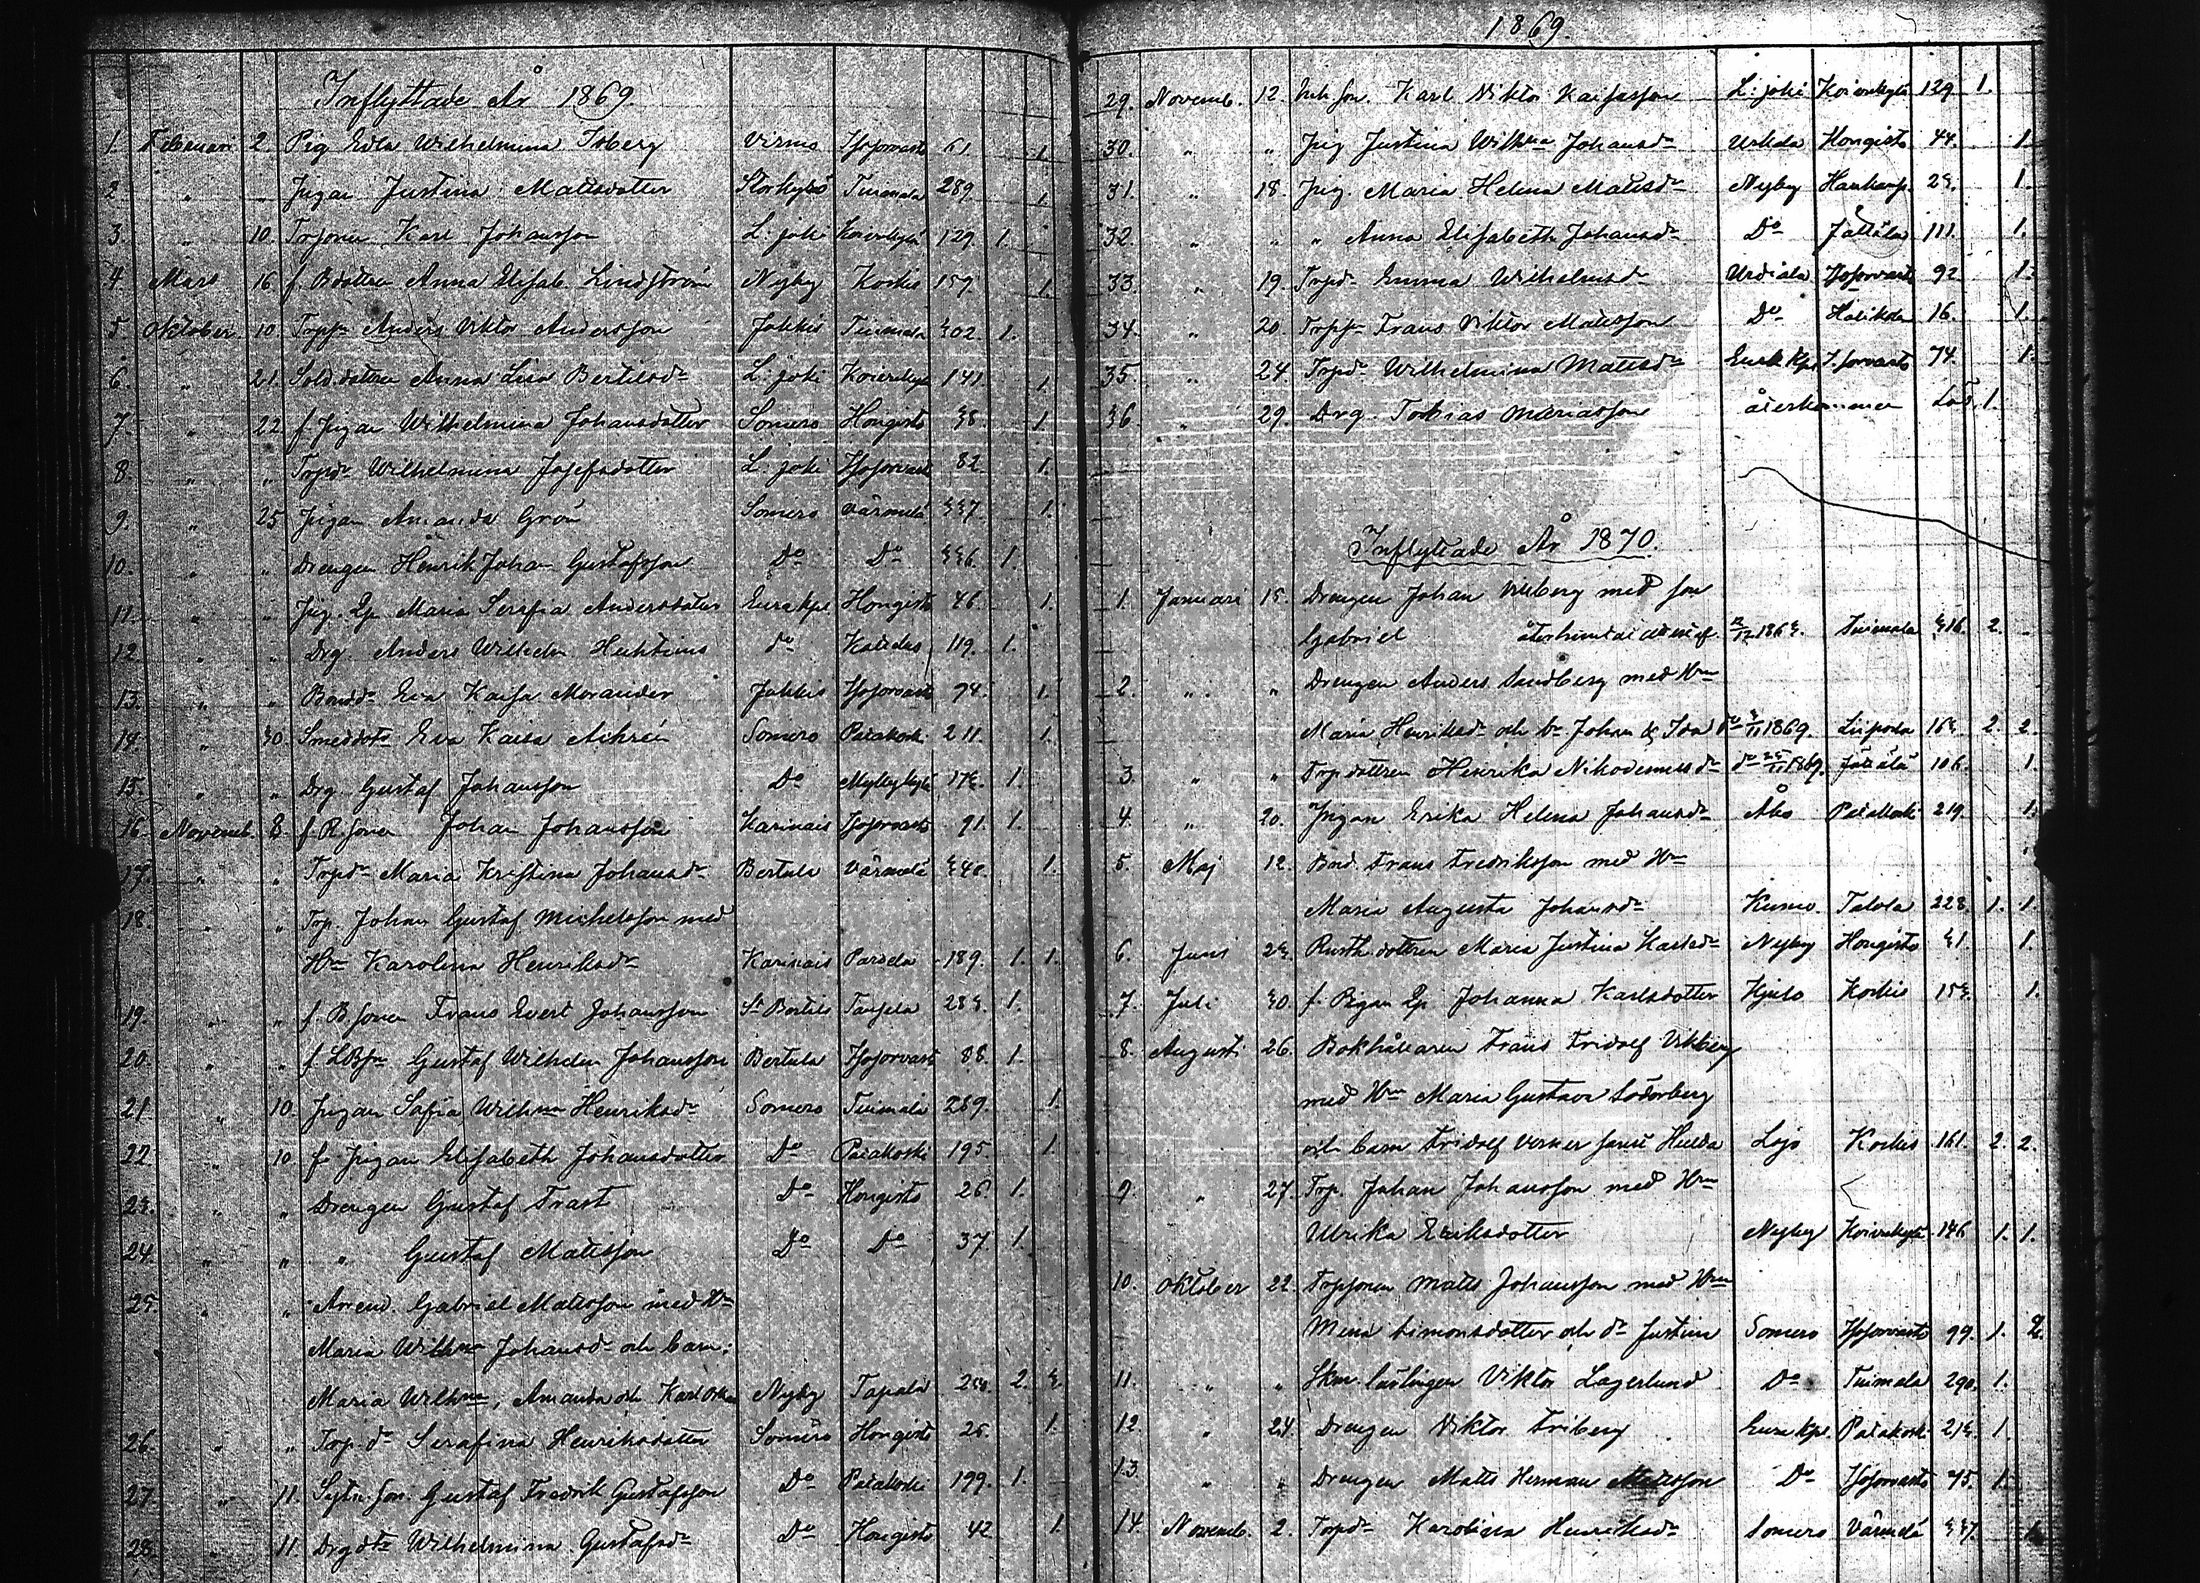 Inflyttade År 1869.
1. Februari 2. Pig Edla Wilhelmina Isberg Virmo 61. 1.
2 " " Pigan Justina Mattsdotter Storkyrö Tuimala 289. 1.
3. " 10. Torpsonen Karl Johansson L: joki Koivukylä 129. 1.
4 Mars 16 f. Bdottren Anna Elisab. Lindström Nyby Koskis 159. 1.
5. Oktober 10. Torpsn Anders Viktor Andersson Jokkis Tuimala 302. 1.
6. " 21. Sold.dottren Anna Lisa Bertilsdr L. joki Koivukylä 141. 1.
7. " 22. f. Pigan Wilhelmina Johansdotter Somero Hongisto 38. 1.
8. " " Torpdr Wilhelmina Josefsdotter L. joki 82. 1.
9. " 25 Pigan Amanda Grön Somero Värmälä 337. 1.
10. " " Drengen Henrik Johan Gustafsson Do Do 336. 1.
11. " " Pig. Ep Maria Serafia Andersdotter Eura kpl Hongisto 46. 1.
12. " " Drg. Anders Wilhelm do 119. 1.
13. " " Bondd. Eva Kajsa Morander Jokkis 94. 1.
14. " 30. Smeddotr Eva Kaisa Somero Patakoski 211. 1.
15. " " Drg Gustaf Johansson Do Myllykylä 173. 1.
16. Novemb. 8. f. R.sonen Johan Johansson Karinais 91. 1.
17. " " Torpdr Maria Kristina Johansdr Bertula Värmälä 340. 1.
18. " " Torp. Johan Gustaf Michelsson med
Hru Karolina Henriksdr Karinais 189. 1. 1.
19. " " f. B.sonen Frans Evert Johansson St Bertils 283. 1.
20. " " Gustaf Wilhelm Johansson Bertula 88. 1.
21. " 10. Pigan Safia Wilhna Henriksdr Somero Tuimala 269. 1.
22. " 10 f. Pigan Elisabeth Johansdotter Do Patakoski 195. 1.
23. " " Drengen Gustaf Trast Do Hongisto 26. 1.
24. " " " Gustaf Mattsson Do Do 37. 1.
25. " " Arrend. Gabriel Mattsson med Hru
Maria Wilhna Johansdr och barn:
Maria Wilhna, Amanda och Karl Nyby Tapala 2. 3.
26. " " Torp.dr Serafina Henriksdotter Somero Hongisto 25. 1.
27. " 11. Sytn. son. Gustaf Fredrik Gustafsson Do Patakoski 199. 1.
28. " 11. Drgdtr Wilhelmina Gustafsdr Do Hongisto 42. 1.
1869.
29. Novemb. 12. Inh son. Karl Viktor Kaisasson L: joki Koivukylä 129. 1.
30. " " Pig Justina Wilhna Johansdr Hongisto 44. 1.
31. " 18. Pig. Maria Helena Mattsdr Nyby 23. 1.
32. " " " Anna Elisabeth Johansdr Do Jättälä 111. 1.
33. " 19. Torpdr Emma Wilhelmsdr Urdiala 92 1.
34. " 20. Torpsn Frans Viktor Mattsson Do 16. 1.
35. " 24. Torpdr Wilhelmina Mattsdr Eura kpl 74. 1.
36. " 29. Drg. Tobias Mariasson återkommen 1.
Inflyttade År 1870.
1. Januari 15. Drengen Johan Vikberg med son
Gabriel Tuimala 316. 2.
2. " " Drengen Anders Sandberg med Hru
Maria Henriksdr och bn Johan & Ida 1869. Liipola 163. 2. 2.
3. " " Torpdottren Henrika Nikodemusdr 1869. Jättälä 106. 1.
4. " 20. Pigan Erika Helena Johansdr Åbo Patakoski 219. 1.
5 Maj 12. Bnd. Frans Fredriksson med Hru
Maria Augusta Johansdr Kumo. Talola 228. 1. 1.
6. Juni 23. Rusth.dottren Maria Justina Karlsdr Nyby Hongisto 31. 1.
7. Juli 30. f. Pigan Ep Johanna Karlsdotter Kjulo Koskis 153. 1.
8. Augusti 26. Bokhållaren Frans Fridolf Vikberg
med Hru Maria Gustava Söderberg
och barn Fridolf Verner samt Hulda Lojo Koskis 161. 2. 2.
9. " 27. Torp. Johan Johansson med Hru
Ulrika Eriksdotter Nyby Koivukylä 146 1. 1.
10. Oktober 22. Torpsonen Matts Johansson med Hru
Mina Simonsdotter och dr Justina Somero 99. 1. 2.
11. " " Skom. lärlingen Viktor Lagerlund Do Tuimala 290. 1.
12. " 24. Drengen Viktor Friberg Eura kpl. Patakoski 213. 1.
13. " " Drengen Matts Herman Mattsson Do 75. 1.
14. Novemb. 2. Torpdr Karolina Henriksdr Somero Värmälä 337. 1.